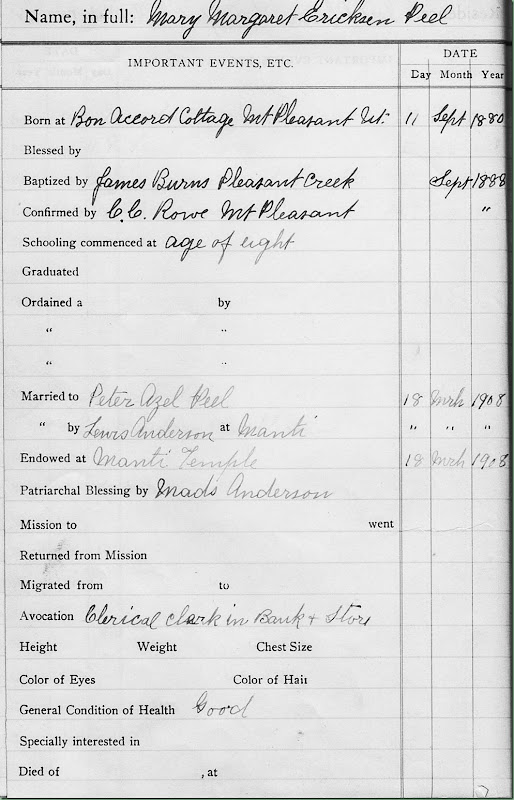 Name, in full: Mary Margaret Ericksen Peel
IMPORTANT EVENTS, ETC. DATE
Day Month Year
Born at Bon Accord Cottage Mt Pleasant Ut. 11 Sept 1880
Blessed by
Baptized by James Burns Pleasant Creek Sept 1888
Confirmed by C.C. Rowe Mt Pleasant "
Schooling commenced at age of eight
Graduated
Ordained a by
" "
" "
Married to Peter Azel Peel 18 Mrh 1908
" by Lewis Anderson at Manti " " "
Endowed at Manti Temple 18 Mrh 1908
Patriarchal Blessing by Mads Anderson
Mission to went
Returned from Mission
Migrated from to
Avocation Clerical clark in Bank & Store
Height Weight Chest Size
Color of Eyes Color of Hair
General Condition of Health Good
Specially interested in
Died of , at